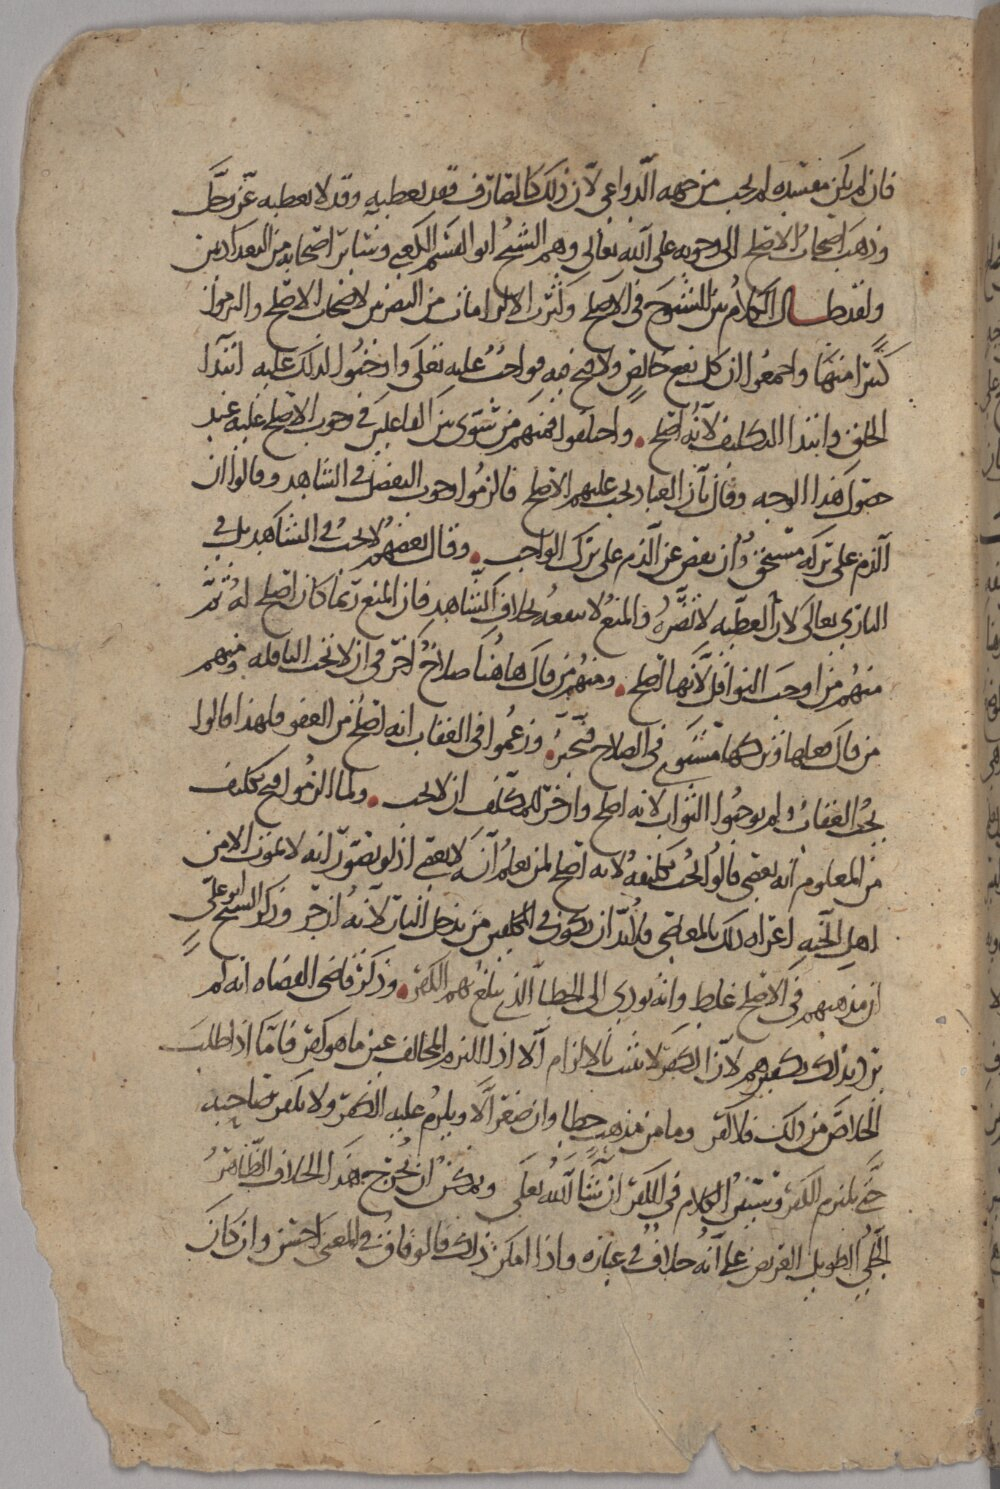 فان لم يكن مفسده لم يجب من جهه الدواعي لان ذلك كالصارف فقد يعطيه وقد لا يعطيه عز وجل
وذهب اصحاب الاصلح الى وجوبه على الله تعالى وهم الشيخ ابو القسم الكعبي وسائر اصحابه من البغداديين
ولقد طال الكلام بين الشيوخ في الاصلح وكثرت الالزامات من البصريين لاصحاب الاصلح والتزموا
كثيرا منها واجمعوا ان كل نفع خالص ولا قبح فيه فواجب عليه تعلى واوجبوا لذلك عليه ابتدا
الخلق وابتدا التكليف لانه اصلح . واختلفوا فمنهم من سوى بين الفاعلين في وجوب الاصلح عليه عند
حصول هذا الوجه وقال بان العباد يجب عليهم الاصلح فالزموا وجوب التفضل في الشاهد وقالوا ان
الذم على تركه مستحق وان نقص عن الذم على ترك الواجب . وقال بعضهم لا يجب في الشاهد بل في
الباري تعالى لان العطيه لا تضره والمنع لا ينفعه بخلاف الشاهد فان المنع ربما كان اصلح له ثم
منهم من اوجب النوافل لانها اصلح . ومنهم من قال هاهنا صلاح اخر في ان لا تجب النافله ومنهم
من قال فعلها وتركها مستو في الصلاح فتخير . وزعموا في العقاب انه اصلح من العفو فلهذا قالوا
يجب العقاب ولم يوجبوا الثواب لانه اصلح وازجر للمكلف ان لا يجب . ولما الزموا قبح تكليف
من المعلوم انه يعصي قالوا يجب تكليفه لانه اصلح لمن يعلم انه لا يعصي اذ لو تصور انه لا يموت الا من
اهل الجنه اغراه ذلك بالمعاصي فلا بد ان يكون في المكلفين من يدخل النار لانه ازجر وذكر الشيخ ابو علي
ان مذهبهم في الاصلح غلط وانه يودي الى الخطا الذي يبلغ بهم الكفر . وذكر قاضي القضاه انه لم
يرد بذلك تكفيرهم لان الكفر لا يثبت بالالزام الا اذا التزم المخالف عين ما هو كفر فاما اذا طلب
الخلاص من ذلك فلا كفر وما من مذهب خطا وان صغر الا ويلزم عليه الكفر ولا يكفر صاحبه
حتى يلتزم الكفر وسيبين الكلام في الكفر ان شا الله تعلى ويمكن ان يخرج هذا الخلاف الظاهر
الجلي الطويل العريض على انه خلاف في عباره واذا امكن ذلك فالوفاق في المعنى احسن وان كان